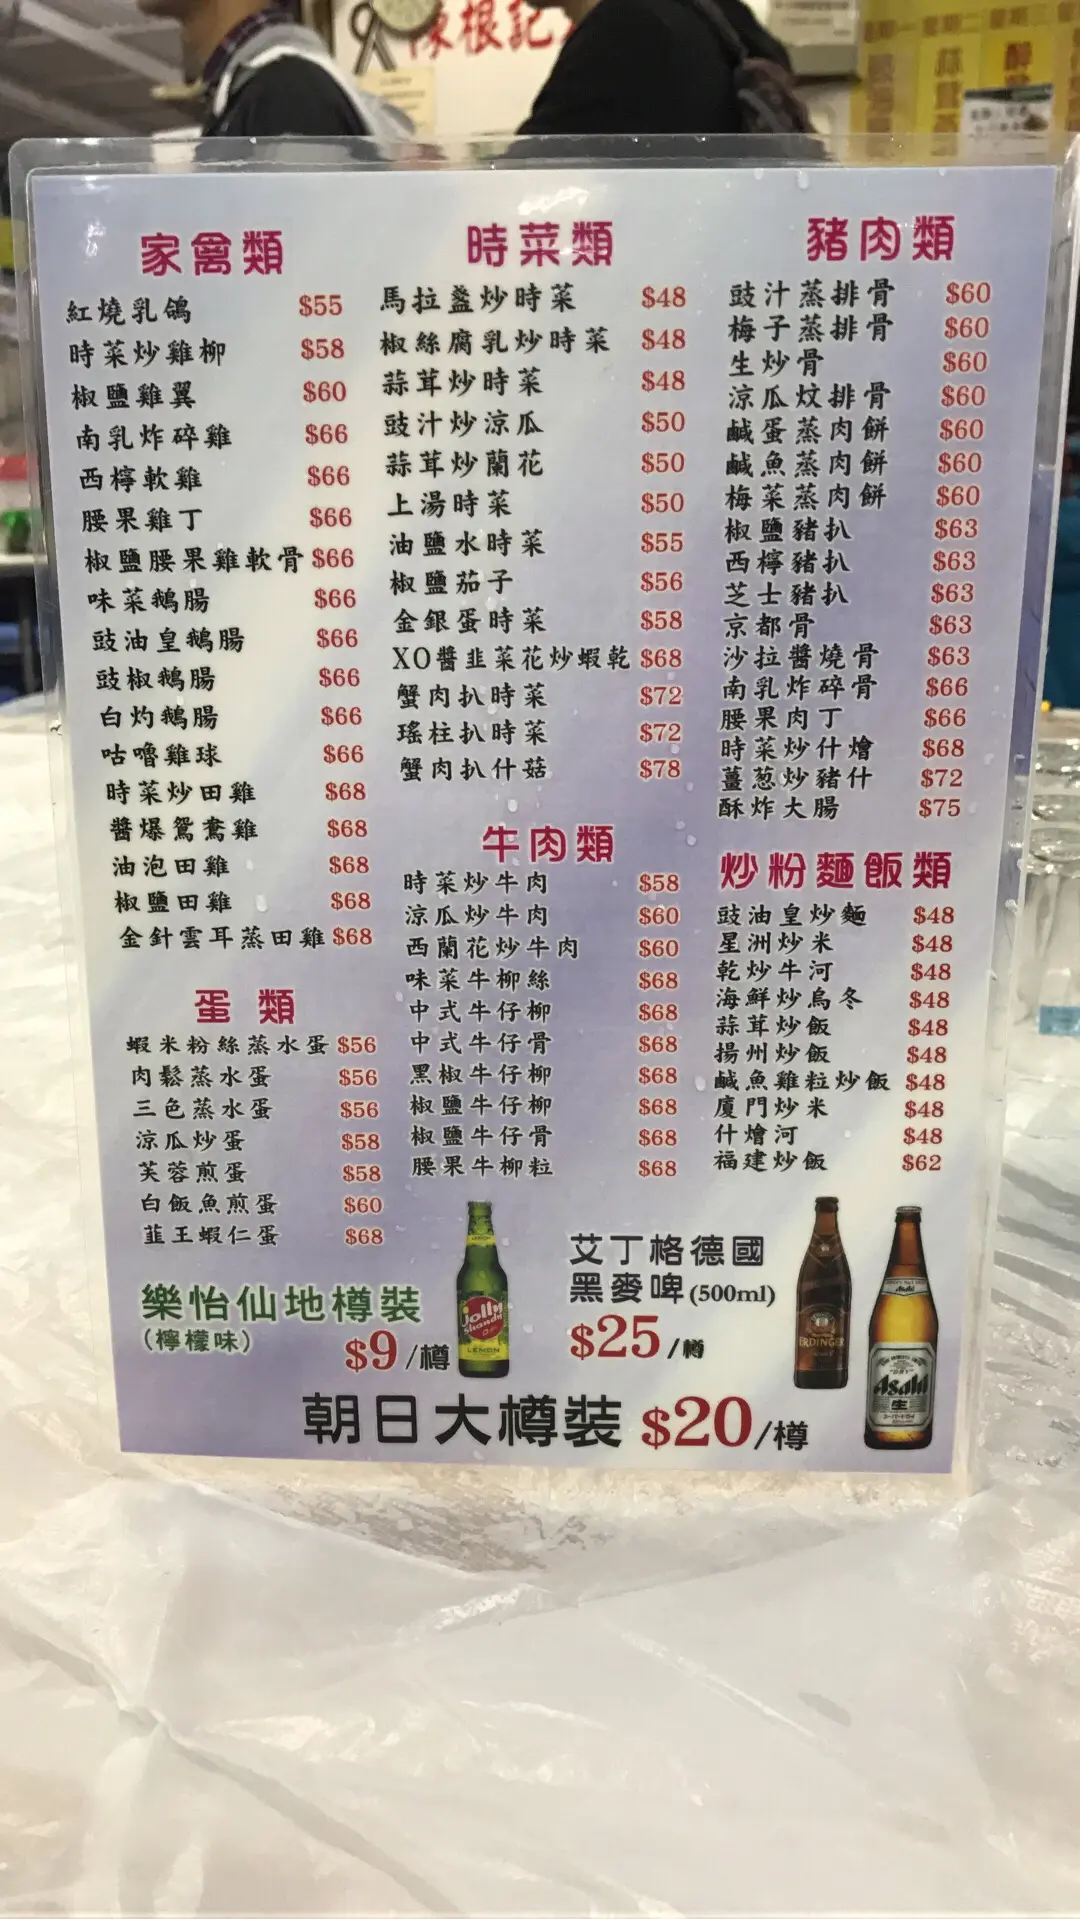 陳根記
家禽類
紅燒乳鴿 $55
時菜炒雞柳 $58
椒鹽雞翼 $60
南乳炸碎雞 $66
西檸軟雞 $66
腰果雞丁 $66
椒鹽腰果雞軟骨 $66
味菜鵝腸 $66
豉油皇鵝腸 $66
豉椒鵝腸 $66
白灼鵝腸 $66
咕嚕雞球 $66
時菜炒田雞 $68
醬爆鴛鴦雞 $68
油泡田雞 $68
椒鹽田雞 $68
金針雲耳蒸田雞 $68
蛋類
蝦米粉絲蒸水蛋 $56
肉鬆蒸水蛋 $56
三色蒸水蛋 $56
涼瓜炒蛋 $58
芙蓉煎蛋 $58
白飯魚煎蛋 $60
韮王蝦仁蛋 $68
時菜類
馬拉盞炒時菜 $48
椒絲腐乳炒時菜 $48
蒜茸炒時菜 $48
豉汁炒涼瓜 $50
蒜茸炒蘭花 $50
上湯時菜 $50
油鹽水時菜 $55
椒鹽茄子 $56
金銀蛋時菜 $58
XO醬韮菜花炒蝦乾 $68
蟹肉扒時菜 $72
瑤柱扒時菜 $72
蟹肉扒什菇 $78
牛肉類
時菜炒牛肉 $58
涼瓜炒牛肉 $60
西蘭花炒牛肉 $60
味菜牛柳絲 $68
中式牛仔柳 $68
中式牛仔骨 $68
黑椒牛仔柳 $68
椒鹽牛仔柳 $68
椒鹽牛仔骨 $68
腰果牛柳粒 $68
豬肉類
豉汁蒸排骨 $60
梅子蒸排骨 $60
生炒骨 $60
涼瓜炆排骨 $60
鹹蛋蒸肉餅 $60
鹹魚蒸肉餅 $60
梅菜蒸肉餅 $60
椒鹽豬扒 $63
西檸豬扒 $63
芝士豬扒 $63
京都骨 $63
沙拉醬燒骨 $63
南乳炸碎骨 $66
腰果肉丁 $66
時菜炒什燴 $68
薑葱炒豬什 $72
酥炸大腸 $75
炒粉麵飯類
豉油皇炒麵 $48
星洲炒米 $48
乾炒牛河 $48
海鮮炒烏冬 $48
蒜茸炒飯 $48
揚州炒飯 $48
鹹魚雞粒炒飯 $48
廈門炒米 $48
什燴河 $48
福建炒飯 $62
樂怡仙地樽裝
(檸檬味)
$9/樽
Jolly
Shandy
LEMON
艾丁格德國
黑麥啤(500ml)
$25/樽
ERDINGER
Asahi
生
朝日大樽裝 $20/樽